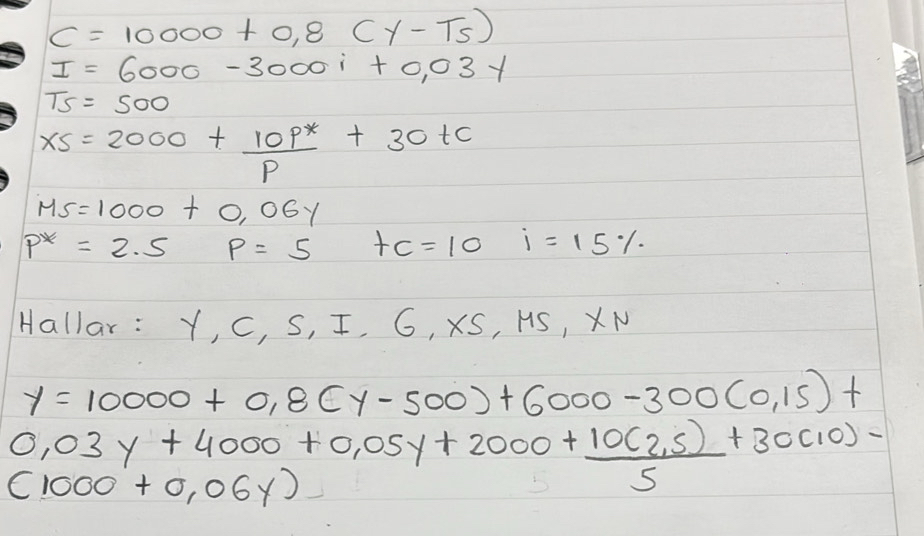 C = 10000 + 0,8 (Y - TS)
I = 6000 - 3000 i + 0,03 Y
TS = 500
XS = 2000 + 10P*/P + 30 tC
MS = 1000 + 0,06Y
P* = 2.5 P = 5 tC = 10 i = 15%.
Hallar: Y, C, S, I, G, XS, MS, XN
Y = 10000 + 0,8 (Y - 500) + 6000 - 300 (0,15) +
0,03 Y + 4000 + 0,05Y + 2000 + 10(2,5)/5 + 30(10) -
(1000 + 0,06Y)